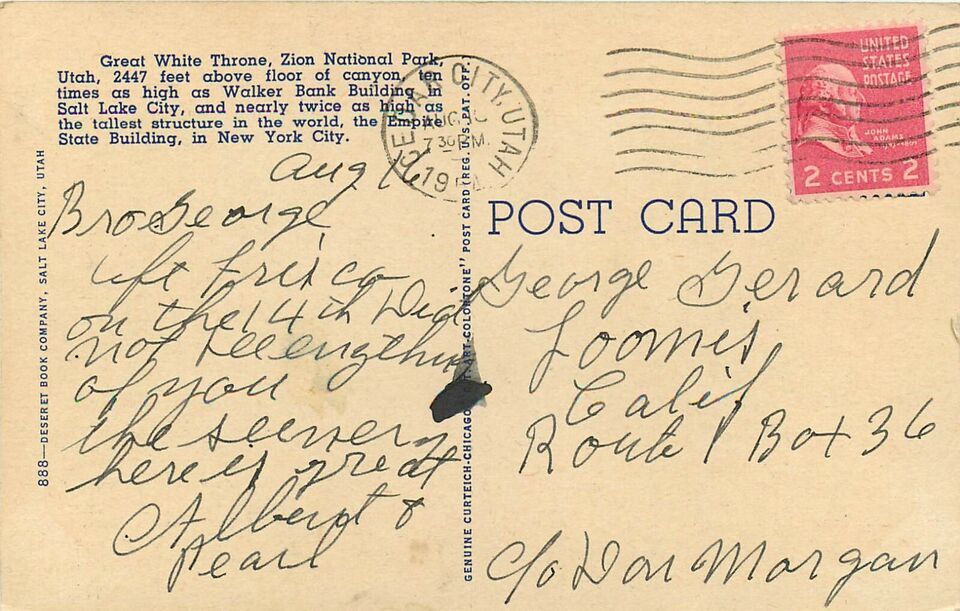 Great White Throne, Zion National Park,
Utah, 2447 feet above floor of canyon, ten
times as high as Walker Bank Building in
Salt Lake City, and nearly twice as high as
the tallest structure in the world, the Empire
State Building, in New York City.
CEDAR CITY, UTAH
AUG 16
7 30 PM
UNITED
STATES
POSTAGE
JOHN
ADAMS
2 CENTS 2
POST CARD
888—DESERET BOOK COMPANY, SALT LAKE CITY, UTAH
GENUINE CURTEICH-CHICAGO "C.T. ART-COLORTONE" POST CARD (REG. U.S. PAT. OFF.)
Aug 16
Bro George
Left Frisco
on the 14th Did
not see
of you
the scenery
here is great
Albert &
Pearl
George Gerard
Loomis,
Calif
Route 1 Box 36
c/o Don Morgan